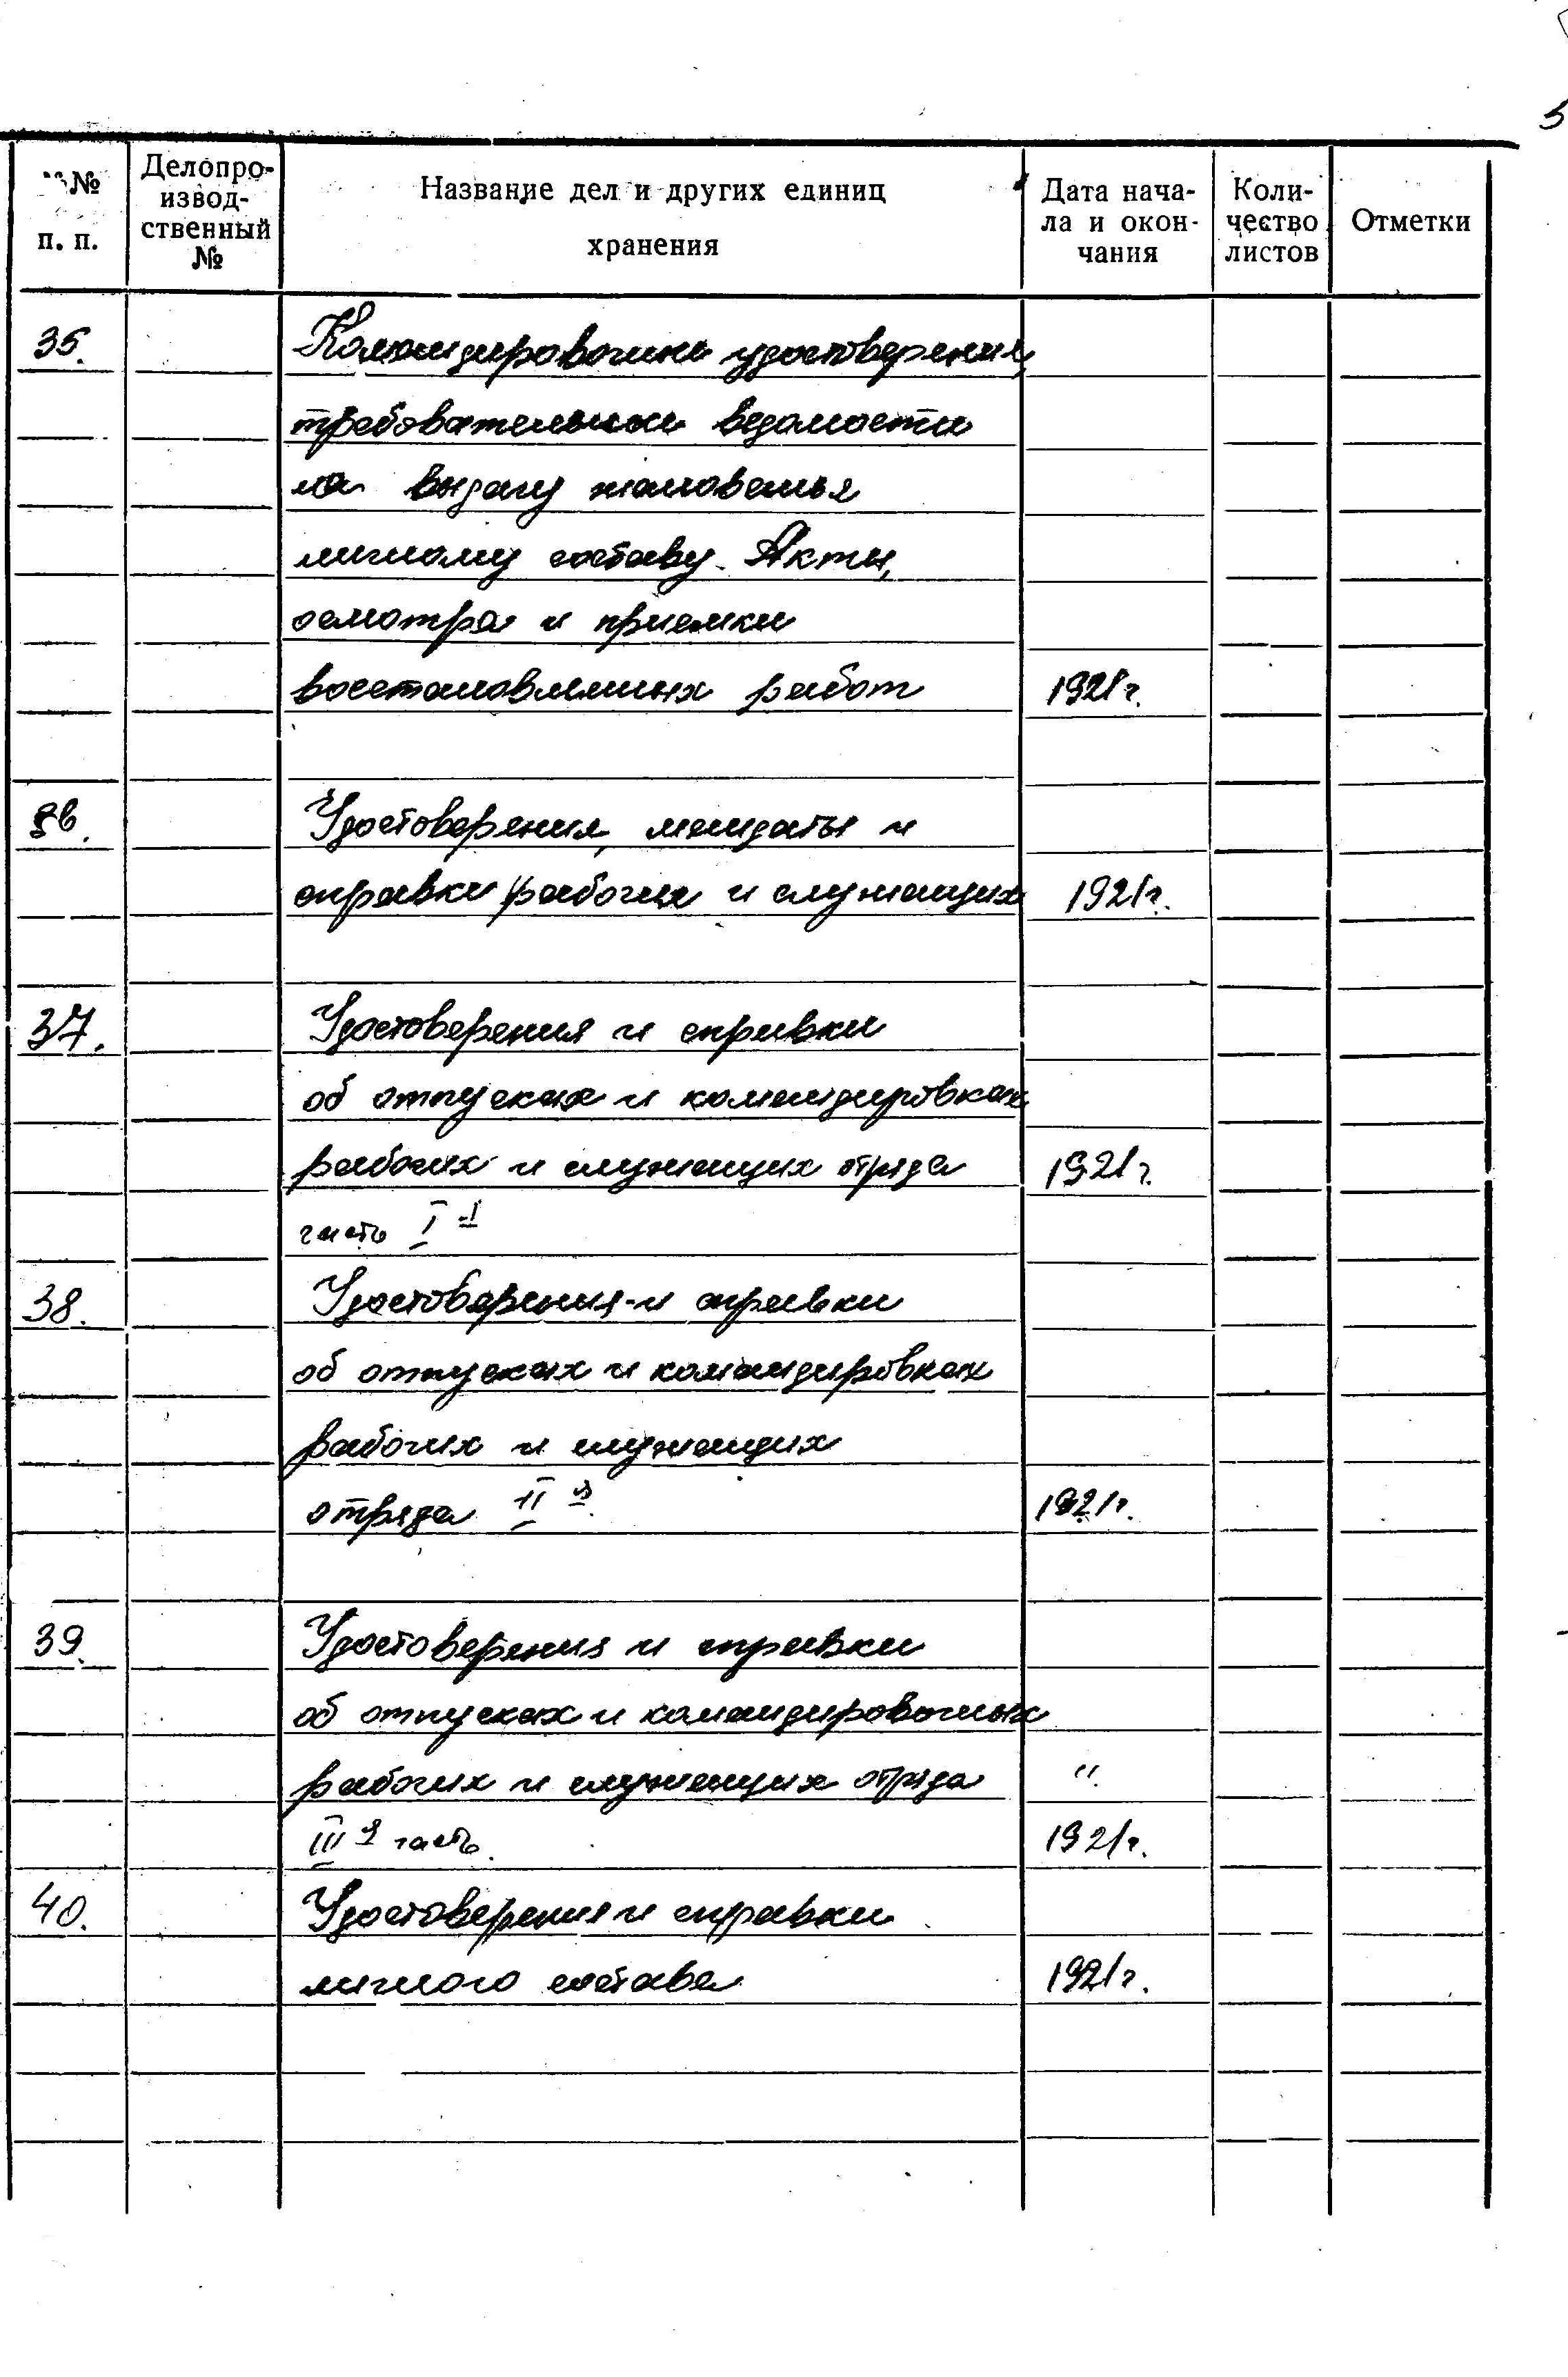 5
№№ п. п.
Делопроизвод-ственный №
Название дел и других единиц хранения
Дата нача-ла и окон-чания
Коли-чество листов
Отметки
35. Командировочные удостоверения,
требовательные ведомости
на выдачу жалованья
личному составу. Акты,
осмотра и приемки
восстановленных работ 1921 г.
36. Удостоверения, мандаты и
справки рабочих и служащих 1921 г.
37. Удостоверения и справки
об отпусках и командировках
рабочих и служащих отряда 1921 г.
часть I
38. Удостоверения и справки
об отпусках и командировках
рабочих и служащих
отряда II я 1921 г.
39. Удостоверения и справки
об отпусках и командировочных
рабочих и служащих отряда "
III я часть. 1921 г.
40. Удостоверения и справки
личного состава 1921 г.